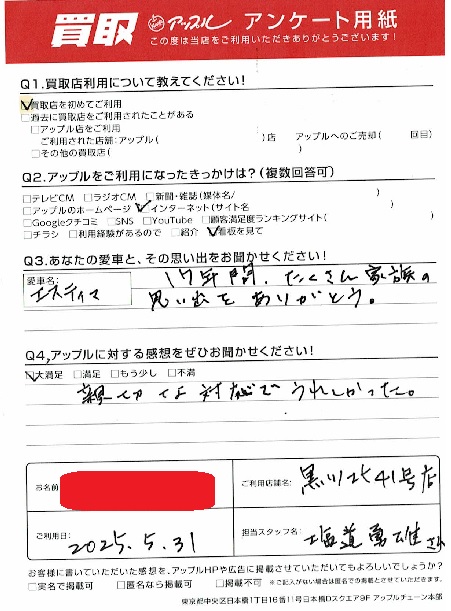 買取 アップル アンケート用紙
この度は当店をご利用いただきありがとうございます！
Q1.買取店利用について教えてください！
☑買取店を初めてご利用
□過去に買取店をご利用されたことがある
□アップル店をご利用
ご利用された店舗:アップル( )店 アップルへのご売却( 回目)
□その他の買取店( )
Q2.アップルをご利用になったきっかけは？(複数回答可)
□テレビCM □ラジオCM □新聞・雑誌(媒体名/ )
□アップルのホームページ ☑インターネット(サイト名 )
□Googleクチコミ □SNS □YouTube □顧客満足度ランキングサイト( )
□チラシ □利用経験があるので □紹介 ☑看板を見て
Q3.あなたの愛車と、その思い出をお聞かせください！
愛車名:
エスティマ
17年間、たくさん家族の
思い出をありがとう。
Q4,アップルに対する感想をぜひお聞かせください！
☑大満足 □満足 □もう少し □不満
親切な対応でうれしかった。
お名前
ご利用店舗名: 黒川北41号店
ご利用日: 2025.5.31
担当スタッフ名: 道勇雄さん
お客様に書いていただいた感想を、アップルHPや広告に掲載させていただいてもよろしいでしょうか？
□実名で掲載可 □匿名なら掲載可 □掲載不可 ※ご記入がない場合は匿名での掲載とさせていただきます。
東京都中央区日本橋1丁目16番11号日本橋Dスクエア9F アップルチェーン本部